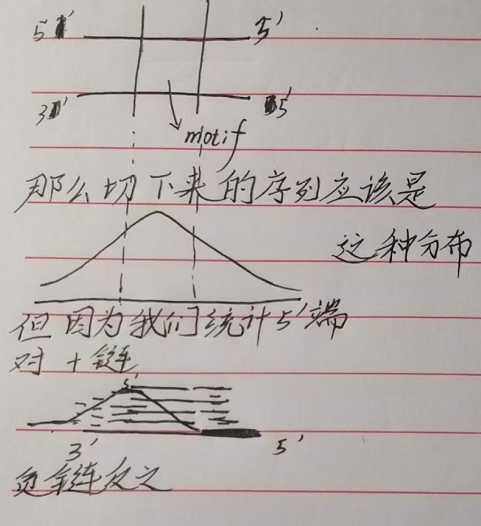 5' 3'
3' 5'
motif
那么切下来的序列应该是
这种分布
但因为我们统计5'端
对 + 链
5'
3' 5'
负链反之